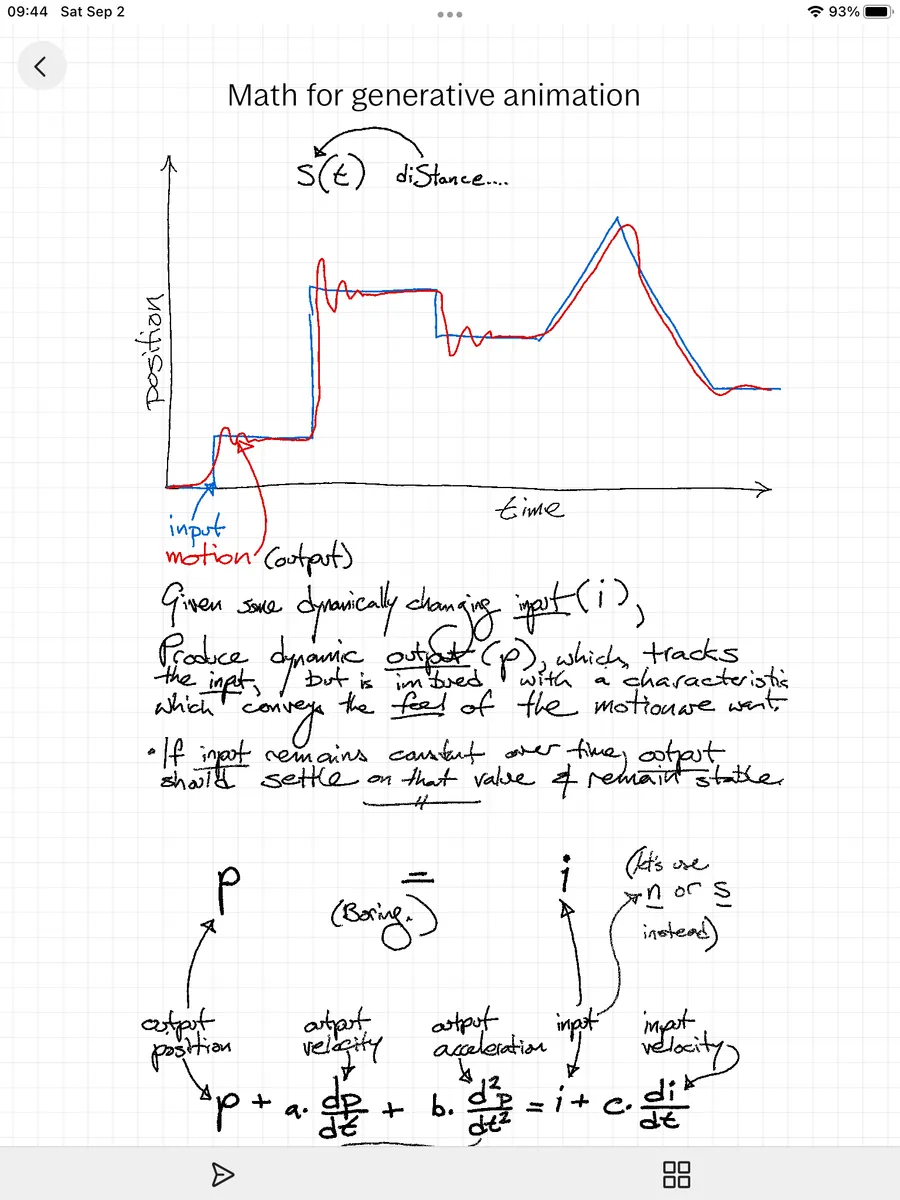 09:44 Sat Sep 2
93%
Math for generative animation
S(t) diStance....
position
time
input
motion (output)
Given some dynamically changing input (i),
Produce dynamic output (p), which, tracks
the input, but is imbued with a characteristic
which conveys the feel of the motion we want.
• If input remains constant over time, output
should settle on that value & remain stable.
p = i
(Boring.)
(let's use
n or s
instead)
output
position
output
velocity
output
acceleration
input
input
velocity
p + a. dp/dt + b. d²p/dt² = i + c. di/dt